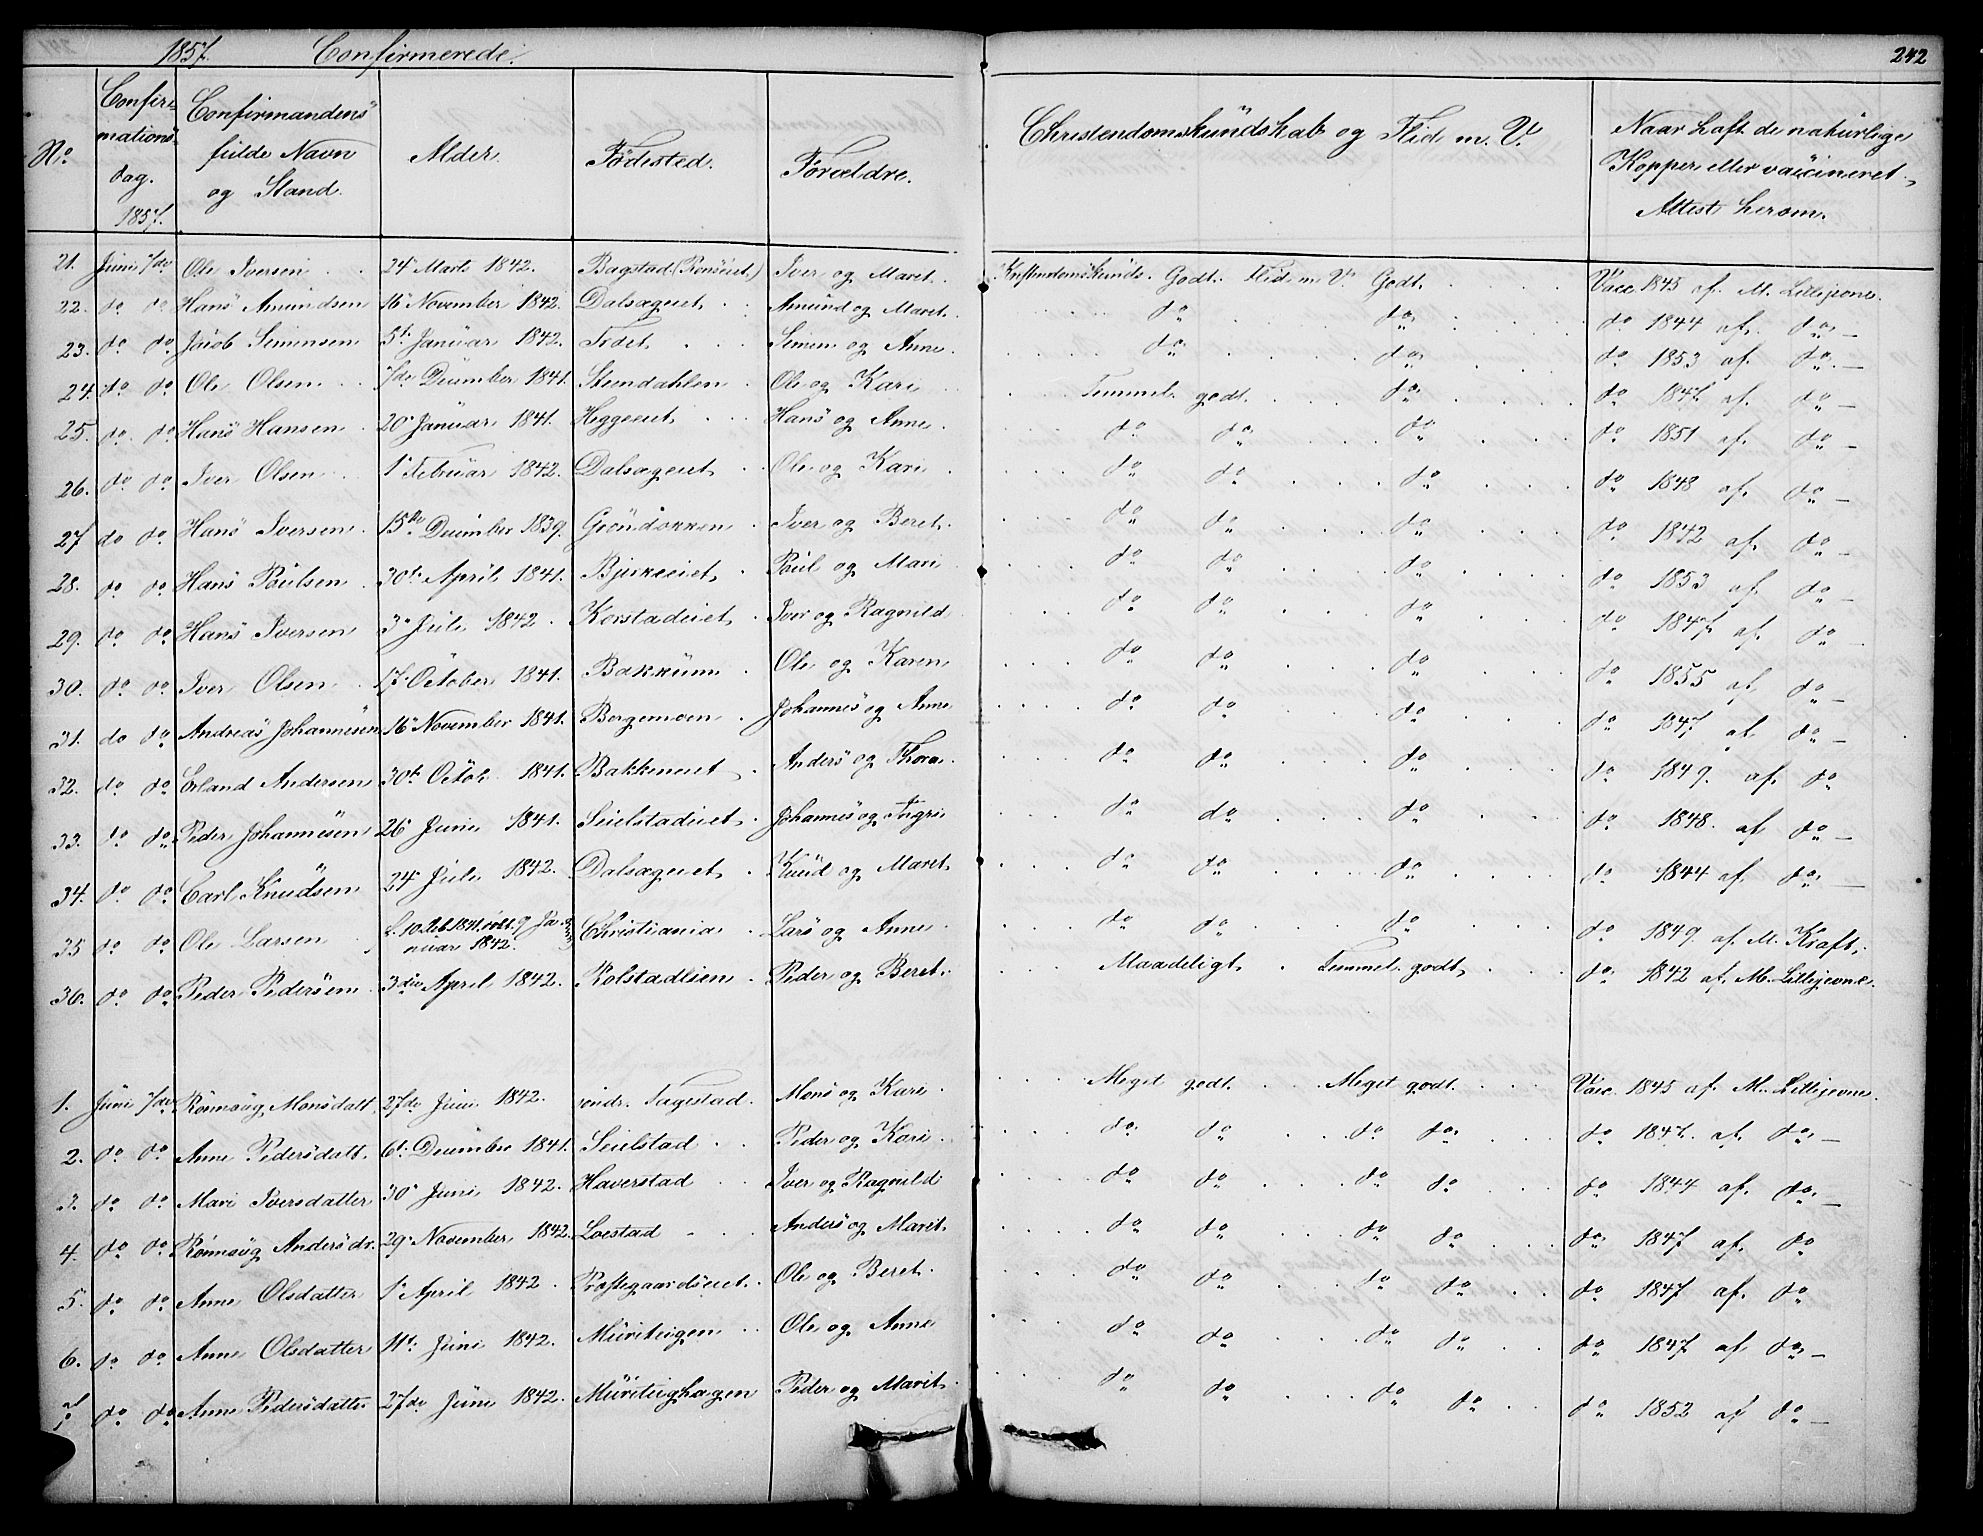 1857. Confirmerede. 242
No. Confirmations dag. 1857. Confirmandens fulde Navn og Stand. Alder. Fødested. Forældre. Christendomskundskab og Flid m. V. Naar haft de naturlige Kopper eller vaccineret, Attest herom.
21. Juni 7de Ole Iversen 24 Marts 1842. Bagstad Iver og Maret. Godt. Flid m. V. Godt Vacc. 1845 af M. Lillejevne.
22. do do Hans Amundsen 16 November 1842. Dalsægeiet Amund og Maret. do do do 1844 af do —
23. do do Jacob Simensen 5t Januar 1842. Tødet Simen og Anne. do do do 1853 af do —
24. do do Ole Olsen 7de December 1841. Steindahlen Ole og Kari Temmel. godt do do 1847 af do —
25. do do Hans Hansen 20 Januar 1841. Heggeeiet Hans og Anne do do do do 1851 af do —
26. do do Iver Olsen 1 Februar 1842. Dalsægeiet Ole og Kari do do do do 1848 af do —
27 do do Hans Iversen 15de December 1839. Grøndokken Iver og Beret do do do do 1842 af do —
28. do do Hans Poulsen 30t April 1841. Bjerkeeiet Poul og Mari do do do do 1853 af do —
29. do do Hans Iversen 3 Juli 1842 Korstadeiet Iver og Ragnild do do do do 1847 af do —
30. do do Iver Olsen 17 October 1841. Bakkum Ole og Karen do do do do 1855 af do —
31. do do Andreas Johannesen 16 November 1841. Borgemoen Johannes og Anne do do do do 1847 af do —
32. do do Erland Andersen 30t Octob. 1841. Bakkeneiet Anders og Thora do do do do 1849. af do
33. do do Peder Johannesen 26 Juni 1841. Seielstadeiet Johannes og Ingri do do do do 1848. af do —
34. do do Carl Knudsen 24 Juli 1842. Dalsægeiet Knud og Maret do do do do 1844 af do —
35 do do Ole Larsen 1841. 9 Januar 1842. Christiania Lars og Anne do do do do 1849. af M. Kraft.
36. do do Peder Pedersen 3die April 1842. Rolstadlien Peder og Beret Maadeligt. Temmel. godt do 1842 af M. Lillejevne.
1. Juni 7de Rønnoug Monsdatt. 27de Juni 1842. nordr. Fagestad. Mons og Kari Meget godt. Meget godt. Vacc. 1845 af M. Lillejevne.
2. do do Anne Pedersdatt. 6t December 1841. Seielstad Peder og Kari do do do do do 1847. af do —
3. do do Mari Iversdatter 30 Juni 1842. Haverstad Iver og Ragnild do do do do do 1844 af do —
4. do do Rønnoug Andersdr. 29 November 1842. Loestad Anders og Marit do do do do do 1847 af do
5. do do Anne Olsdatter 1 April 1842 Præstegaardseiet Ole og Beret do do do do do 1847 af do
6. do do Anne Olsdatter 11t Juni 1842. Muriteigen Ole og Anne do do do do do 1847 af do —
do do Anne Pedersdatter 27de Juni 1842. Muriteighagen Peder og Marit do do do do do 1852 af do —